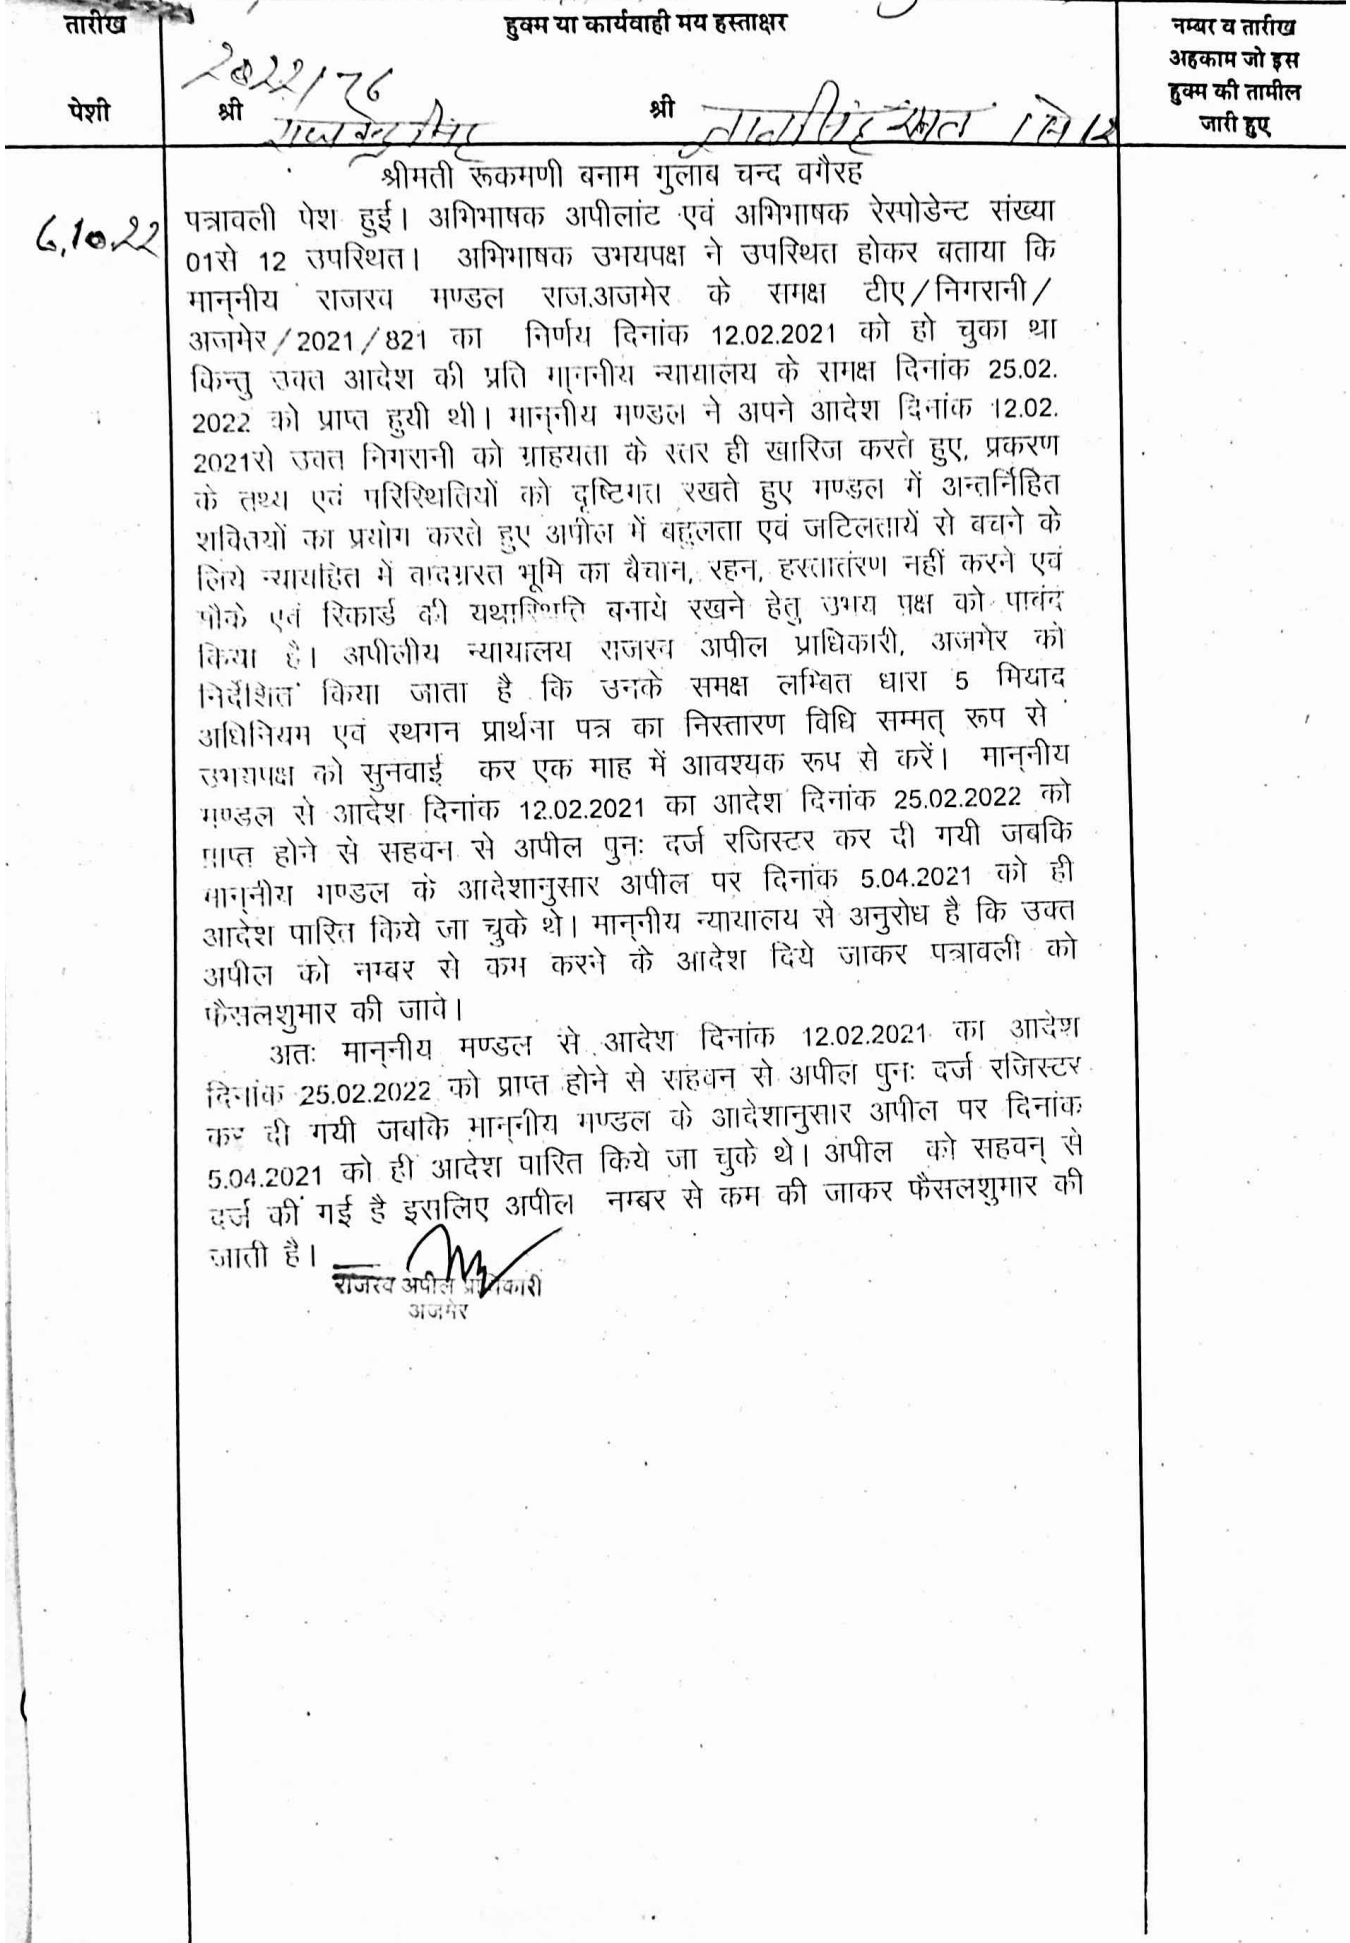 तारीख
हुक्म या कार्यवाही मय हस्ताक्षर
नम्बर व तारीख
अहकाम जो इस
हुक्म की तामील
जारी हुए
2022/76
पेशी
श्री
श्री
श्रीमती रूकमणी बनाम गुलाब चन्द वगैरह
6.10.22
पत्रावली पेश हुई। अभिभाषक अपीलांट एवं अभिभाषक रेस्पोडेन्ट संख्या
01से 12 उपस्थित। अभिभाषक उभयपक्ष ने उपस्थित होकर बताया कि
मान्‌नीय राजस्व मण्डल राज.अजमेर के समक्ष टीए/निगरानी/
अजमेर/2021/821 का निर्णय दिनांक 12.02.2021 को हो चुका था
किन्तु उक्त आदेश की प्रति मा्ननीय न्यायालय के समक्ष दिनांक 25.02.
2022 को प्राप्त हुयी थी। मान्‌नीय मण्डल ने अपने आदेश दिनांक 12.02.
2021से उक्त निगरानी को ग्राहयता के स्तर ही खारिज करते हुए, प्रकरण
के तथ्य एवं परिस्थितियों को दृष्टिगत रखते हुए मण्डल में अन्तर्निहित
शक्तियों का प्रयोग करते हुए अपील में बहुलता एवं जटिलतायें से बचने के
लिये न्यायहित में वादग्रस्त भूमि का बैचान, रहन, हस्तातंरण नहीं करने एवं
मौके एवं रिकार्ड की यथास्थिति बनाये रखने हेतु उभय पक्ष को पाबंद
किया है। अपीलीय न्यायालय राजस्व अपील प्राधिकारी, अजमेर को
निर्देशित किया जाता है कि उनके समक्ष लम्बित धारा 5 मियाद
अधिनियम एवं स्थगन प्रार्थना पत्र का निस्तारण विधि सम्मत् रूप से
उभयपक्ष को सुनवाई कर एक माह में आवश्यक रूप से करें। मान्‌नीय
मण्डल से आदेश दिनांक 12.02.2021 का आदेश दिनांक 25.02.2022 को
प्राप्त होने से सहवन से अपील पुनः दर्ज रजिस्टर कर दी गयी जबकि
मान्‌नीय मण्डल के आदेशानुसार अपील पर दिनांक 5.04.2021 को ही
आदेश पारित किये जा चुके थे। मान्‌नीय न्यायालय से अनुरोध है कि उक्त
अपील को नम्बर से कम करने के आदेश दिये जाकर पत्रावली को
फैसलशुमार की जावे।
अतः मान्‌नीय मण्डल से आदेश दिनांक 12.02.2021 का आदेश
दिनांक 25.02.2022 को प्राप्त होने से सहवन से अपील पुनः दर्ज रजिस्टर
कर दी गयी जबकि मान्‌नीय मण्डल के आदेशानुसार अपील पर दिनांक
5.04.2021 को ही आदेश पारित किये जा चुके थे। अपील को सहवन् से
दर्ज कीं गई है इसलिए अपील नम्बर से कम की जाकर फैसलशुमार की
जाती है।
राजस्व अपील प्राधिकारी
अजमेर